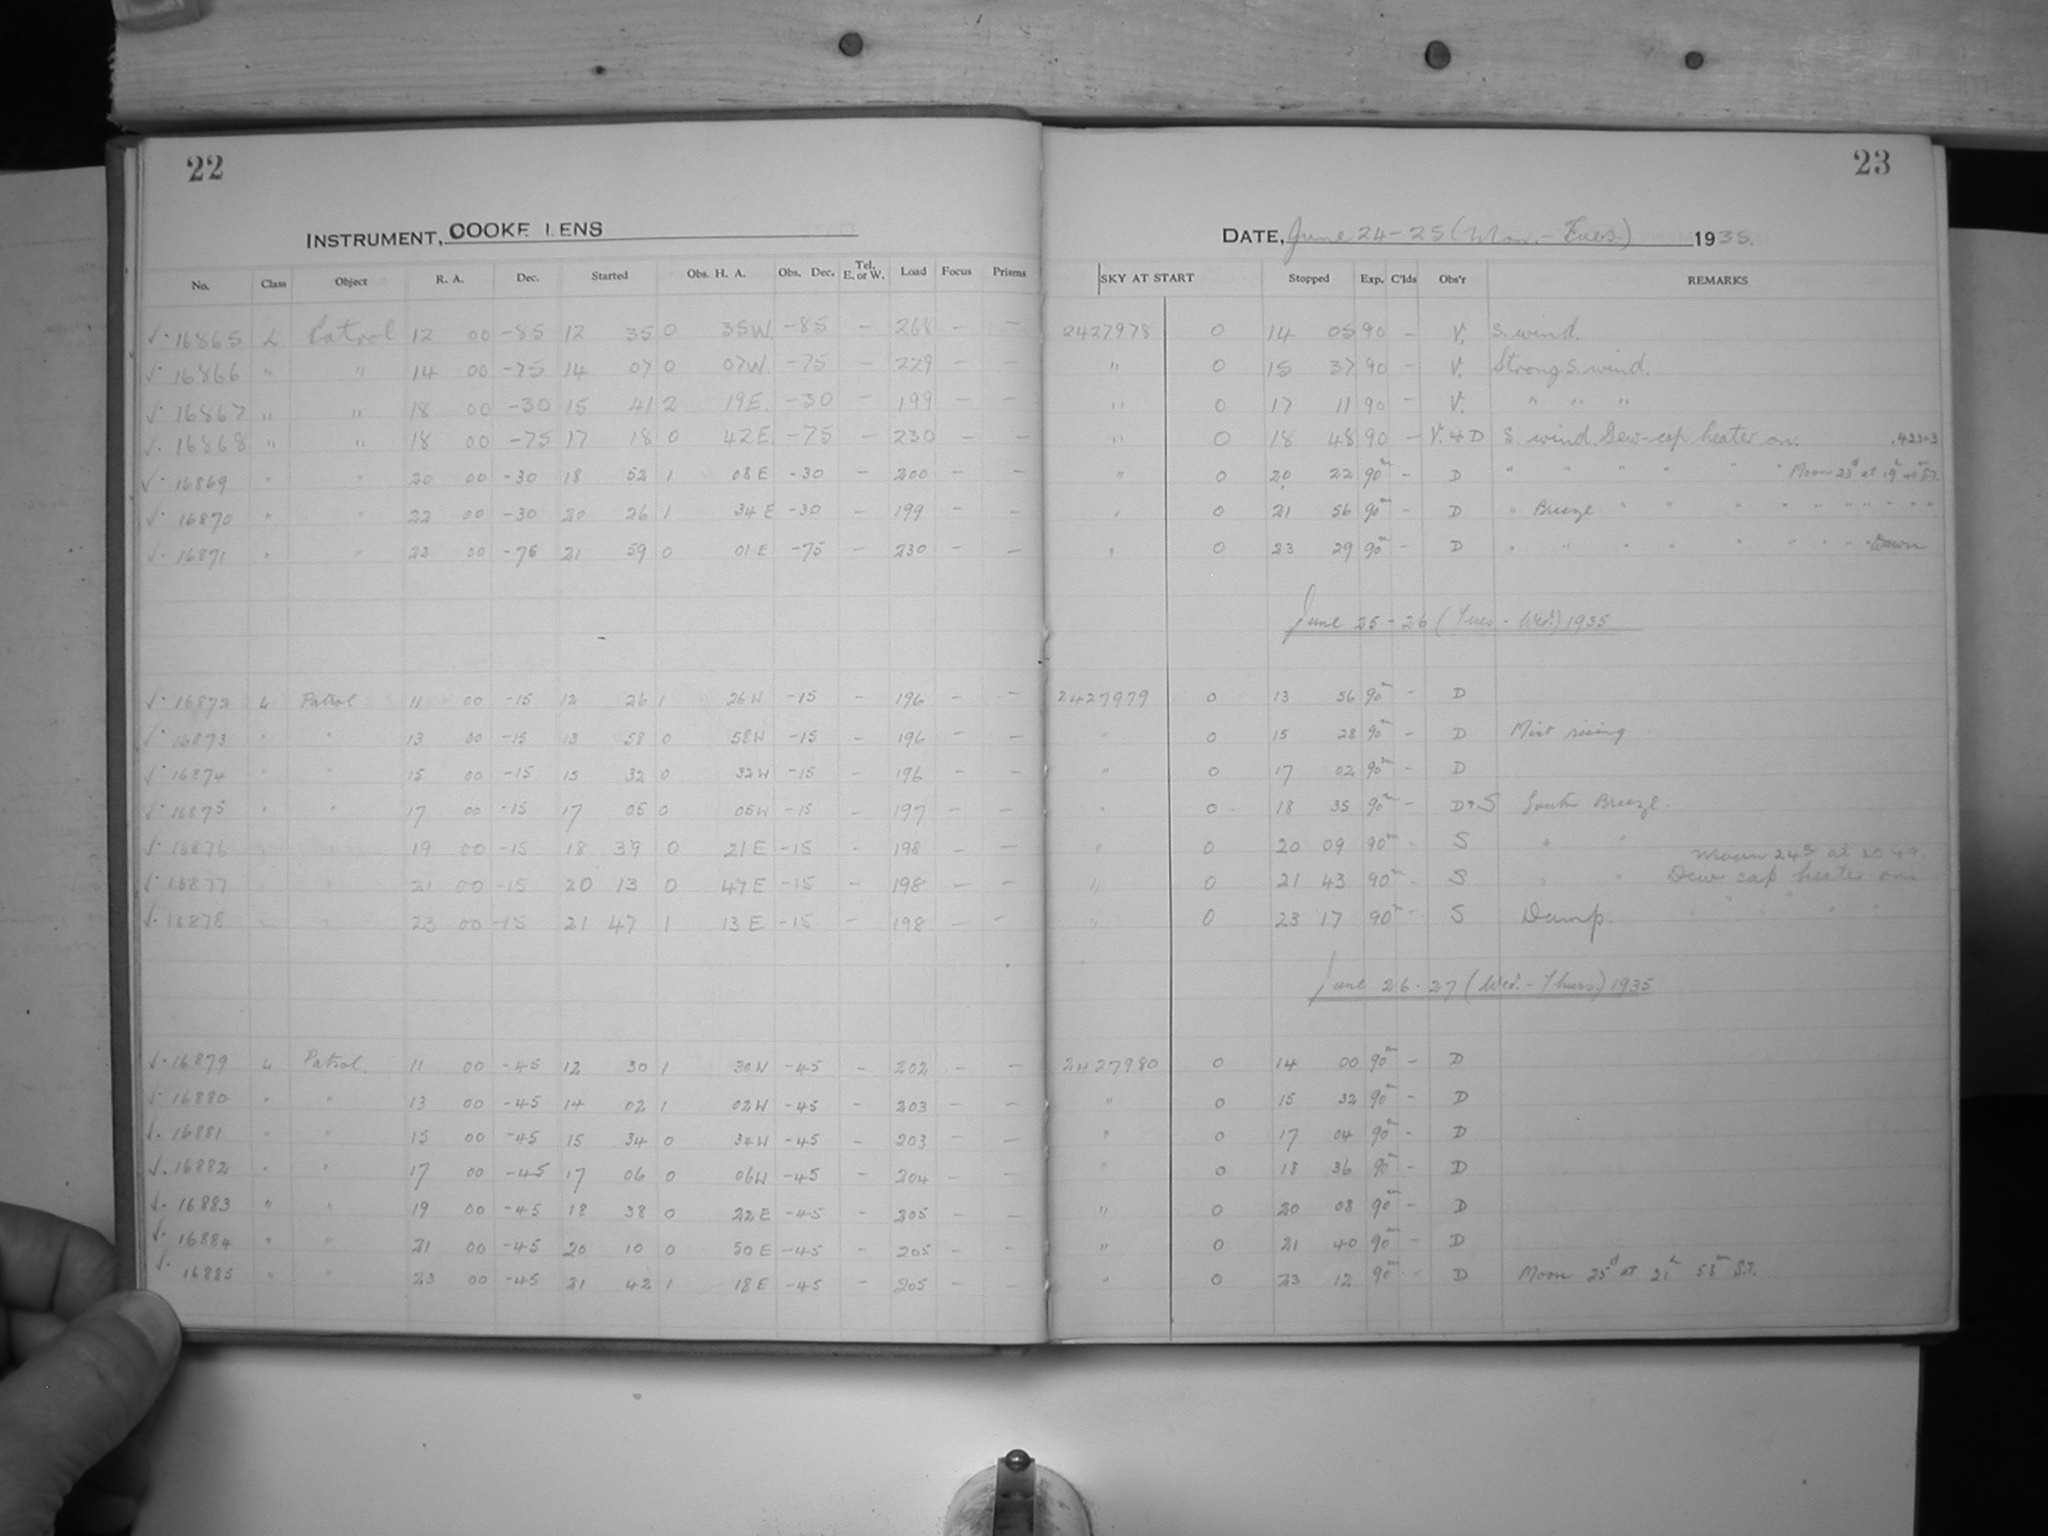 22
INSTRUMENT, COOKE LENS
No. Class Object R. A. Dec. Started Obs. H. A. Obs. Dec. Tel. E. or W. Load Focus Prisms
√· 16865 L Patrol 12 00 -85 12 35 0 35W. -85 - 268 - -
√· 16866 " " 14 00 -75 14 07 0 07W. -75 - 229 - -
√· 16867 " " 18 00 -30 15 41 2 19E. -30 - 199 - -
√· 16868 " " 18 00 -75 17 18 0 42E. -75 - 230 - -
√· 16869 " " 20 00 -30 18 52 1 08 E -30 - 200 - -
√· 16870 " " 22 00 -30 20 26 1 34 E -30 - 199 - -
√· 16871 " " 22 00 -75 21 59 0 01 E -75 - 230 - -
√· 16872 L Patrol 11 00 -15 12 26 1 26 W -15 - 196 - -
√· 16873 " " 13 00 -15 13 58 0 58 W -15 - 196 - -
√· 16874 " " 15 00 -15 15 32 0 32 W -15 - 196 - -
√· 16875 " " 17 00 -15 17 05 0 05 W -15 - 197 - -
√· 16876 " " 19 00 -15 18 39 0 21 E -15 - 198 - -
√· 16877 " " 21 00 -15 20 13 0 47 E -15 - 198 - -
√· 16878 " " 23 00 -15 21 47 1 13 E -15 - 198 - -
√· 16879 L Patrol. 11 00 -45 12 30 1 30 W -45 - 202 - -
√· 16880 " " 13 00 -45 14 02 1 02 W -45 - 203 - -
√· 16881 " " 15 00 -45 15 34 0 34 W -45 - 203 - -
√· 16882 " " 17 00 -45 17 06 0 06 W -45 - 204 - -
√· 16883 " " 19 00 -45 18 38 0 22 E -45 - 205 - -
√· 16884 " " 21 00 -45 20 10 0 50 E -45 - 205 - -
√· 16885 " " 23 00 -45 21 42 1 18 E -45 - 205 - -
23
DATE, June 24-25 (Mon. - Tues.) 1935.
SKY AT START Stopped Exp. C'lds Obs'r REMARKS
2427978 0 14 05 90 - V. S. wind.
" 0 15 37 90 - V. Strong S. wind.
" 0 17 11 90 - V. " " "
" 0 18 48 90 - V. & D S. wind. Dew-cap heater on.
" 0 20 22 90m - D " " " " " " Moon 23d at 19h S.T.
" 0 21 56 90m - D " Breeze " " " " " " " " "
" 0 23 29 90m - D " " " " " " " " " Dawn
June 25-26 (Tues - Wed.) 1935
2427979 0 13 56 90m - D
" 0 15 28 90m - D Mist rising
" 0 17 02 90m - D
" 0 18 35 90m - D & S South Breeze.
" 0 20 09 90m - S " " Moon 24d at
" 0 21 43 90m - S " " Dew cap heater on.
" 0 23 17 90m - S Damp. " " " " "
June 26-27 (Wed. - Thurs.) 1935
2427980 0 14 00 90m - D
" 0 15 32 90m - D
" 0 17 04 90m - D
" 0 18 36 90m - D
" 0 20 08 90m - D
" 0 21 40 90m - D
" 0 23 12 90m - D Moon 25d at 21h 58m S.T.